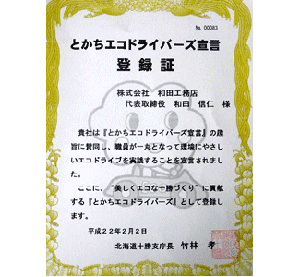 No. 00083
とかちエコドライバーズ宣言
登録証
株式会社 和田工務店
代表取締役 和田 信仁 様
貴社は『とかちエコドライバーズ宣言』の趣
旨に賛同し、職員が一丸となって環境にやさし
いエコドライブを実践することを宣言されまし
た。
ここに、"美しくエコな一勝づくり"に貢献
する『とかちエコドライバーズ』として登録し
ます。
平成22年2月2日
北海道十勝支庁長 竹林 孝